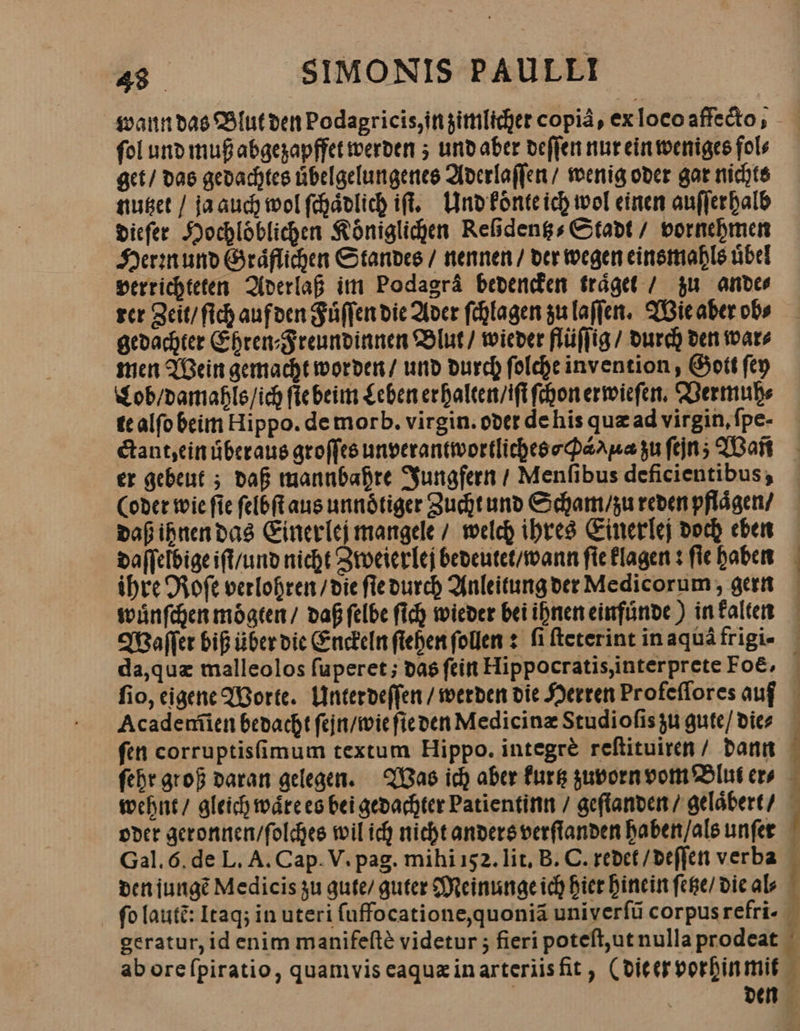 48 SIMONIS PAULLI
wann das Blut den Podagricis, in zimlicher copiâ, ex loco affecto,
ſol und muß abgezapffet werden ; und aber deſſen nur ein weniges fol⸗
get / das gedachtes uͤbelgelungenes Aderlaſſen / wenig oder gar nichts
nutzet / ja auch wol ſchaͤdlich iſt. Und koͤnte ich wol einen auſſerhalb
dieſer Hochloͤblichen Koͤniglichen Reſidentz⸗Stadt / vornehmen
Herꝛn und Graͤflichen Standes / nennen / der wegen einsmahls uͤbel
verrichteten Aderlaß im Podagrâ bedencken traͤget / zu ande⸗
rer Zeit / ſich auf den Fuͤſſen die Ader ſchlagen zu laſſen. Wie aber ob⸗
gedachter Ehren⸗Freundinnen Blut / wieder fluͤſſig / durch den war⸗
men Wein gemacht worden / und durch ſolche invention, Gott ſey
Lob / damahls / ich ſie beim Leben erhalten / iſt ſchon erwieſen. Vermuh⸗
te alſo beim Hippo. de morb. virgin. oder de his quæ ad virgin. ſpe-
ctant, ein uͤberaus groſſes unverantwortliches σφάλμα zu ſejn; Wañ
er gebeut ; daß mannbahre Jungfern / Menſibus deficientibus,
(oder wie ſie ſelbſt aus unnoͤtiger Zucht und Scham / zu reden pflaͤgen /
daß ihnen das Einerlej mangele / welch ihres Einerlej doch eben
daſſelbige iſt / und nicht Zweierlej bedeutet / wann ſie klagen : ſie haben
ihre Roſe verlohren / die ſie durch Anleitung der Medicorum, gern
wuͤnſchen moͤgten / daß ſelbe ſich wieder bei ihnen einfuͤnde ) in kalten
Waſſer biß uͤber die Enckeln ſtehen ſollen : ſi ſteterint in aquâ frigi-
da, quæ malleolos ſuperet ; das ſein Hippocratis, interprete Foë-
ſio, eigene Worte. Unterdeſſen / werden die Herren Profeſſores auf
Academiien bedacht ſejn / wie ſie den Medicinæ Studioſis zu gute / die⸗
ſen corruptisſimum textum Hippo. integrè reſtituiren / dann
ſehr groß daran gelegen. Was ich aber kurtz zuvorn vom Blut er⸗
wehnt / gleich waͤre es bei gedachter Patientinn / geſtanden / gelaͤbert /
oder geronnen / ſolches wil ich nicht anders verſtanden haben / als unſer
Gal. 6. de L. A. Cap. V. pag. mihi 152. lit. B. C. redet / deſſen verba
den jungẽ Medicis zu gute / guter Meinunge ich hier hinein ſetze / die al⸗
ſo lautẽ: Itaq; in uteri ſuffocatione, quoniã univerſũ corpus refri-
geratur, id enim manifeſtè videtur ; fieri poteſt, ut nulla prodeat
ab ore ſpiratio, quamvis eaquæ in arteriis fit, (die er vorhin mit
den